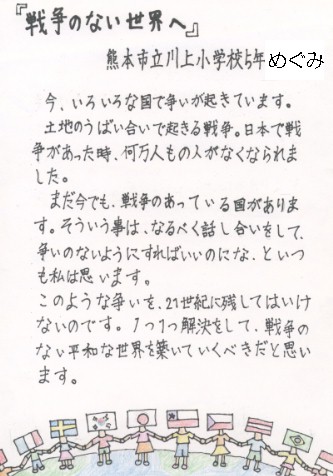 『戦争のない世界へ』
熊本市立川上小学校5年 めぐみ
今、いろいろな国で争いが起きています。
土地のうばい合いで起きる戦争。日本で戦
争があった時、何万人もの人がなくなられま
した。
まだ今でも、戦争のあっている国がありま
す。そういう事は、なるべく話し合いをして、
争いのないようにすればいいのにな、といつ
も私は思います。
このような争いを、21世紀に残してはいけ
ないのです。1つ1つ解決をして、戦争の
ない平和な世界を築いていくべきだと思い
ます。